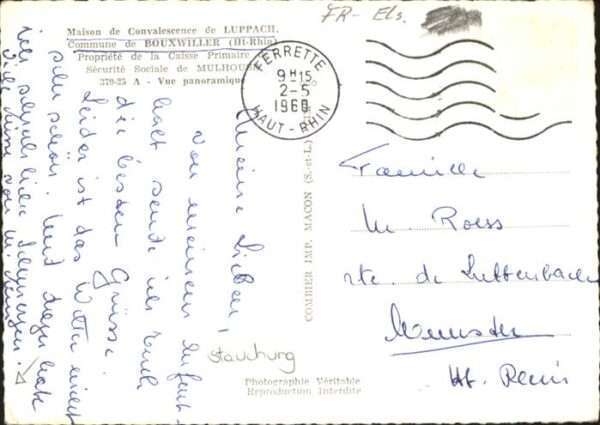 FR- Els.
Maison de Convalescence de LUPPACH,
Commune de BOUXWILLER (Ht-Rhin)
Propriété de la Caisse Primaire
Sécurité Sociale de MULHOUSE
379-25 A - Vue panoramique
FERRETTE
9H15
2-5
1960
HAUT-RHIN
Meine Lieben,
von meinem Aufent-
halt sende ich Euch
die besten Grüsse.
Leider ist das Wetter nicht
sehr schön. Und
COMBIER IMP. MACON (S.-et-L.)
Famille
M. Roess
rte. de Luttenbach
Munster
Ht. Rhin
Stauchung
Photographie Véritable
Reproduction Interdite